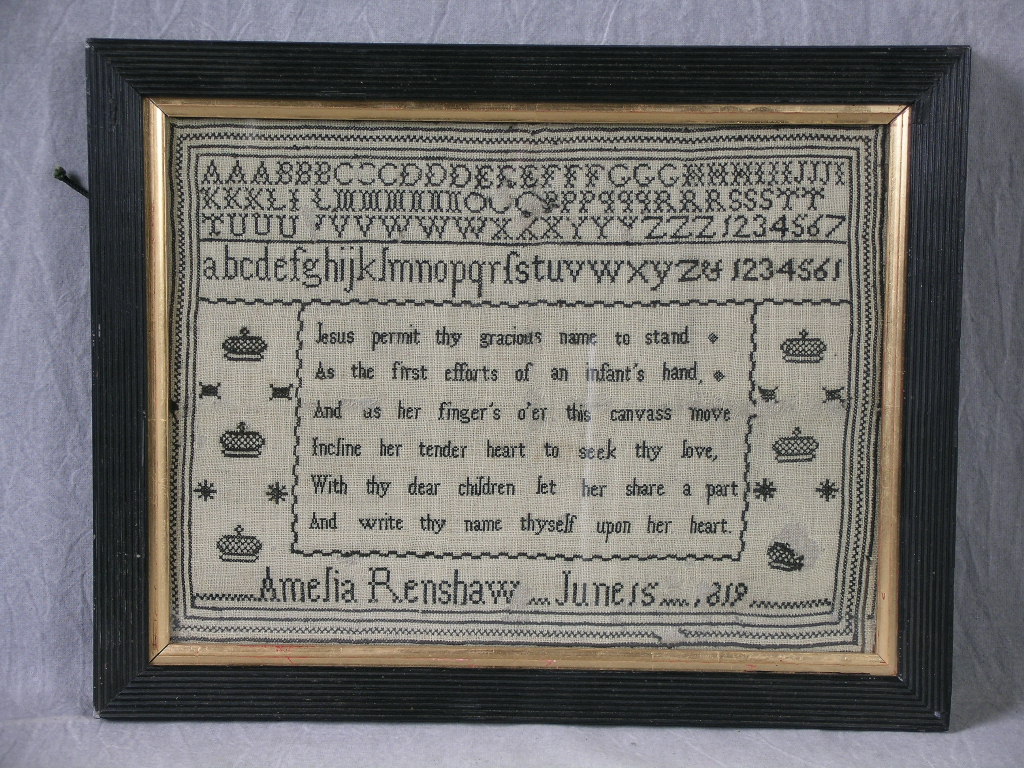 A A A B B B C C C D D D E E E F F F G G G H H H I I I J J J
K K K L L L M M M N N N O O O P P P Q Q Q R R R S S S T T
T U U U V V V W W W X X X Y Y Y Z Z Z 1 2 3 4 5 6 7
a b c d e f g h i j k l m n o p q r ſ s t u v w x y z & 1 2 3 4 5 6 1
Jesus permit thy gracious name to stand
As the first efforts of an infant's hand,
And as her finger's o'er this canvass move
Incline her tender heart to seek thy love,
With thy dear children let her share a part
And write thy name thyself upon her heart.
Amelia Renshaw June 15 1819